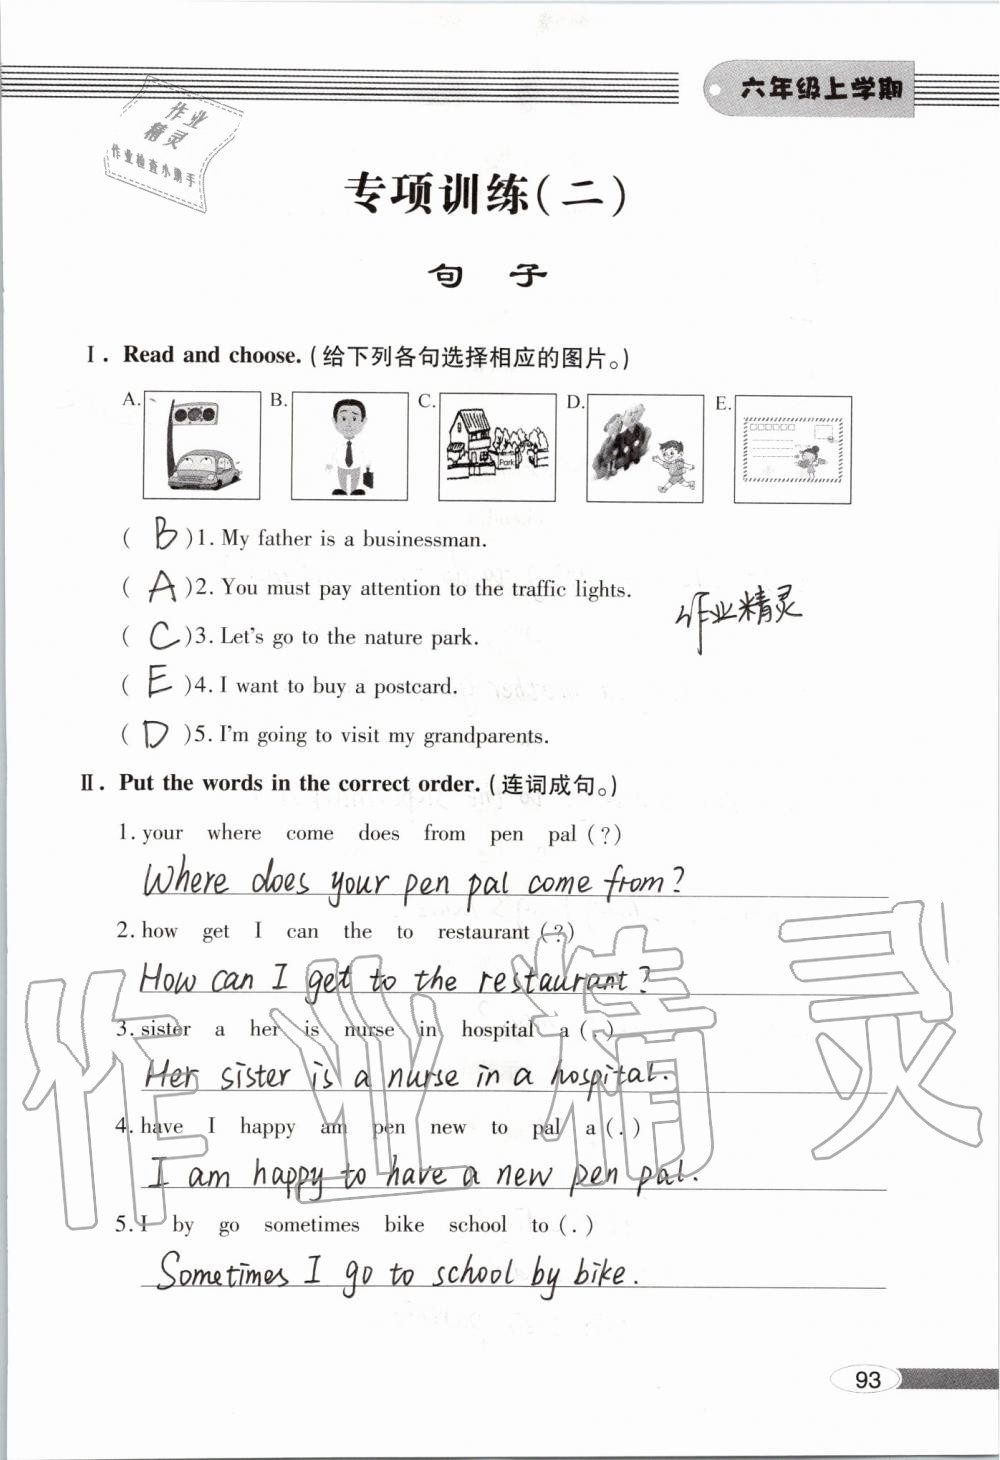 六年级上学期
作业
精灵
作业检查小助手
专项训练(二)
句 子
Ⅰ. Read and choose. (给下列各句选择相应的图片。)
A. B. C. D. E.
Park
( B )1. My father is a businessman.
( A )2. You must pay attention to the traffic lights.
作业精灵
( C )3. Let's go to the nature park.
( E )4. I want to buy a postcard.
( D )5. I'm going to visit my grandparents.
Ⅱ. Put the words in the correct order. (连词成句。)
1. your where come does from pen pal (?)
Where does your pen pal come from?
2. how get I can the to restaurant (?)
How can I get to the restaurant?
3. sister a her is nurse in hospital a (.)
Her sister is a nurse in a hospital.
4. have I happy am pen new to pal a (.)
I am happy to have a new pen pal.
5. I by go sometimes bike school to (.)
Sometimes I go to school by bike.
作业精灵
93